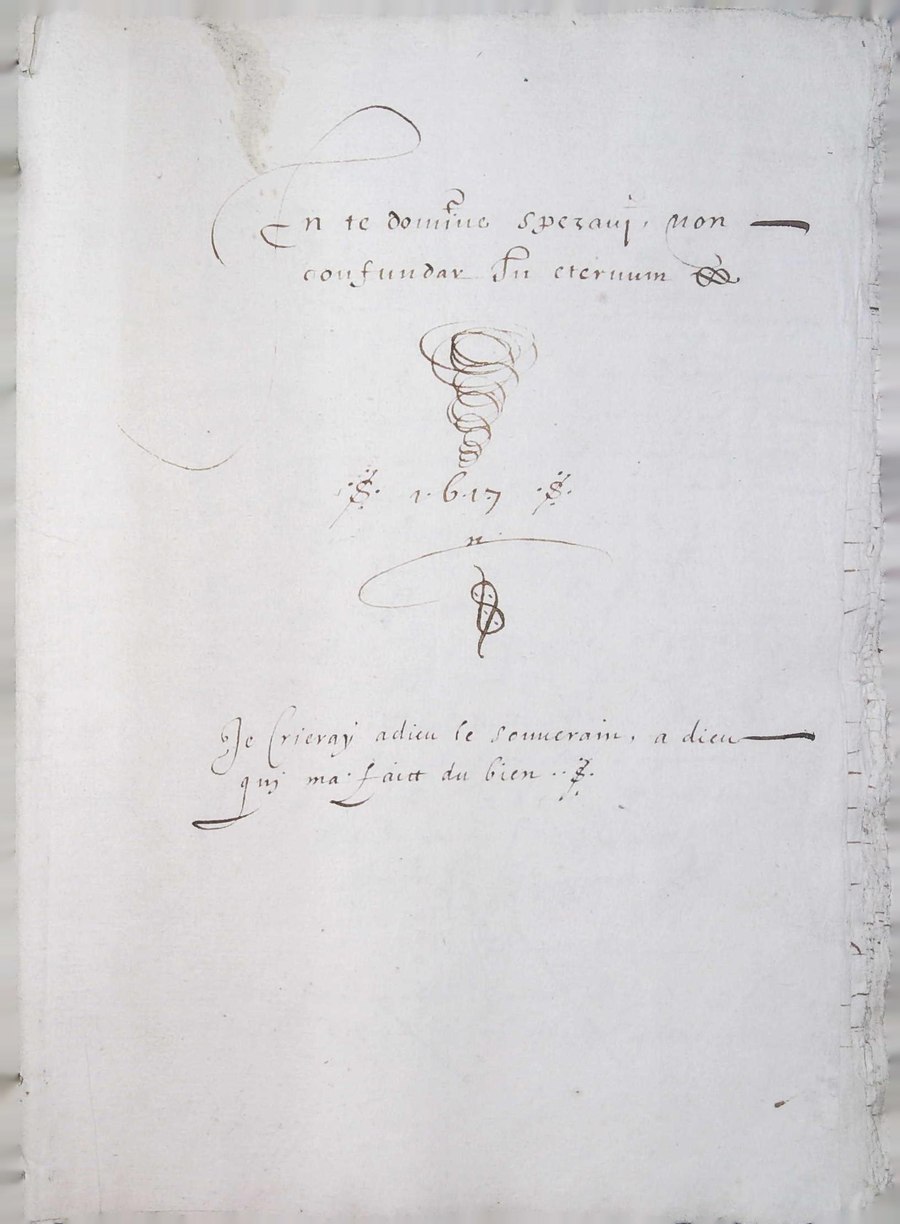 En te domine speraui, non
confundar In eternum
.S. 1.6.17 .S.
n
Je Crieray adieu le souuerain, a dieu
quj ma faict du bien ..S.